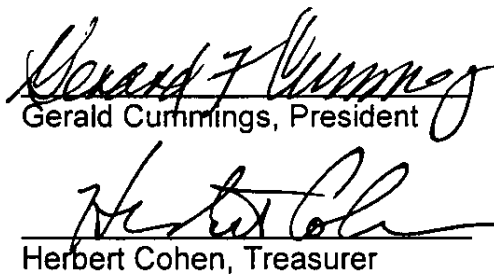 Gerard F Cummings
Gerald Cummings, President
Herbert Cohen
Herbert Cohen, Treasurer